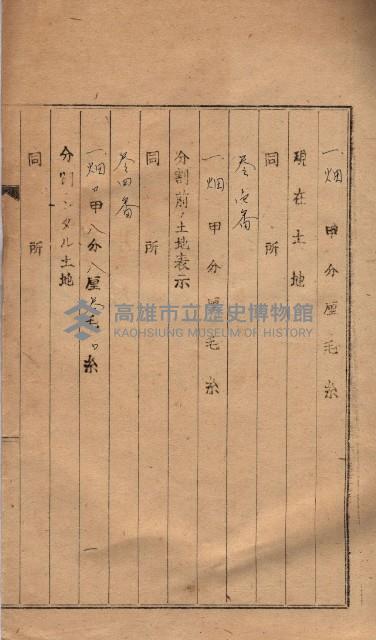 一、畑 甲 分 厘 毛 糸
現在土地
同所
一、畑 甲 分 厘 毛 糸
分割前ノ土地表示
同所
参四番
一、畑 甲八分八厘 毛 糸
分割シタル土地
同所
高雄市立歷史博物館
KAOHSIUNG MUSEUM OF HISTORY